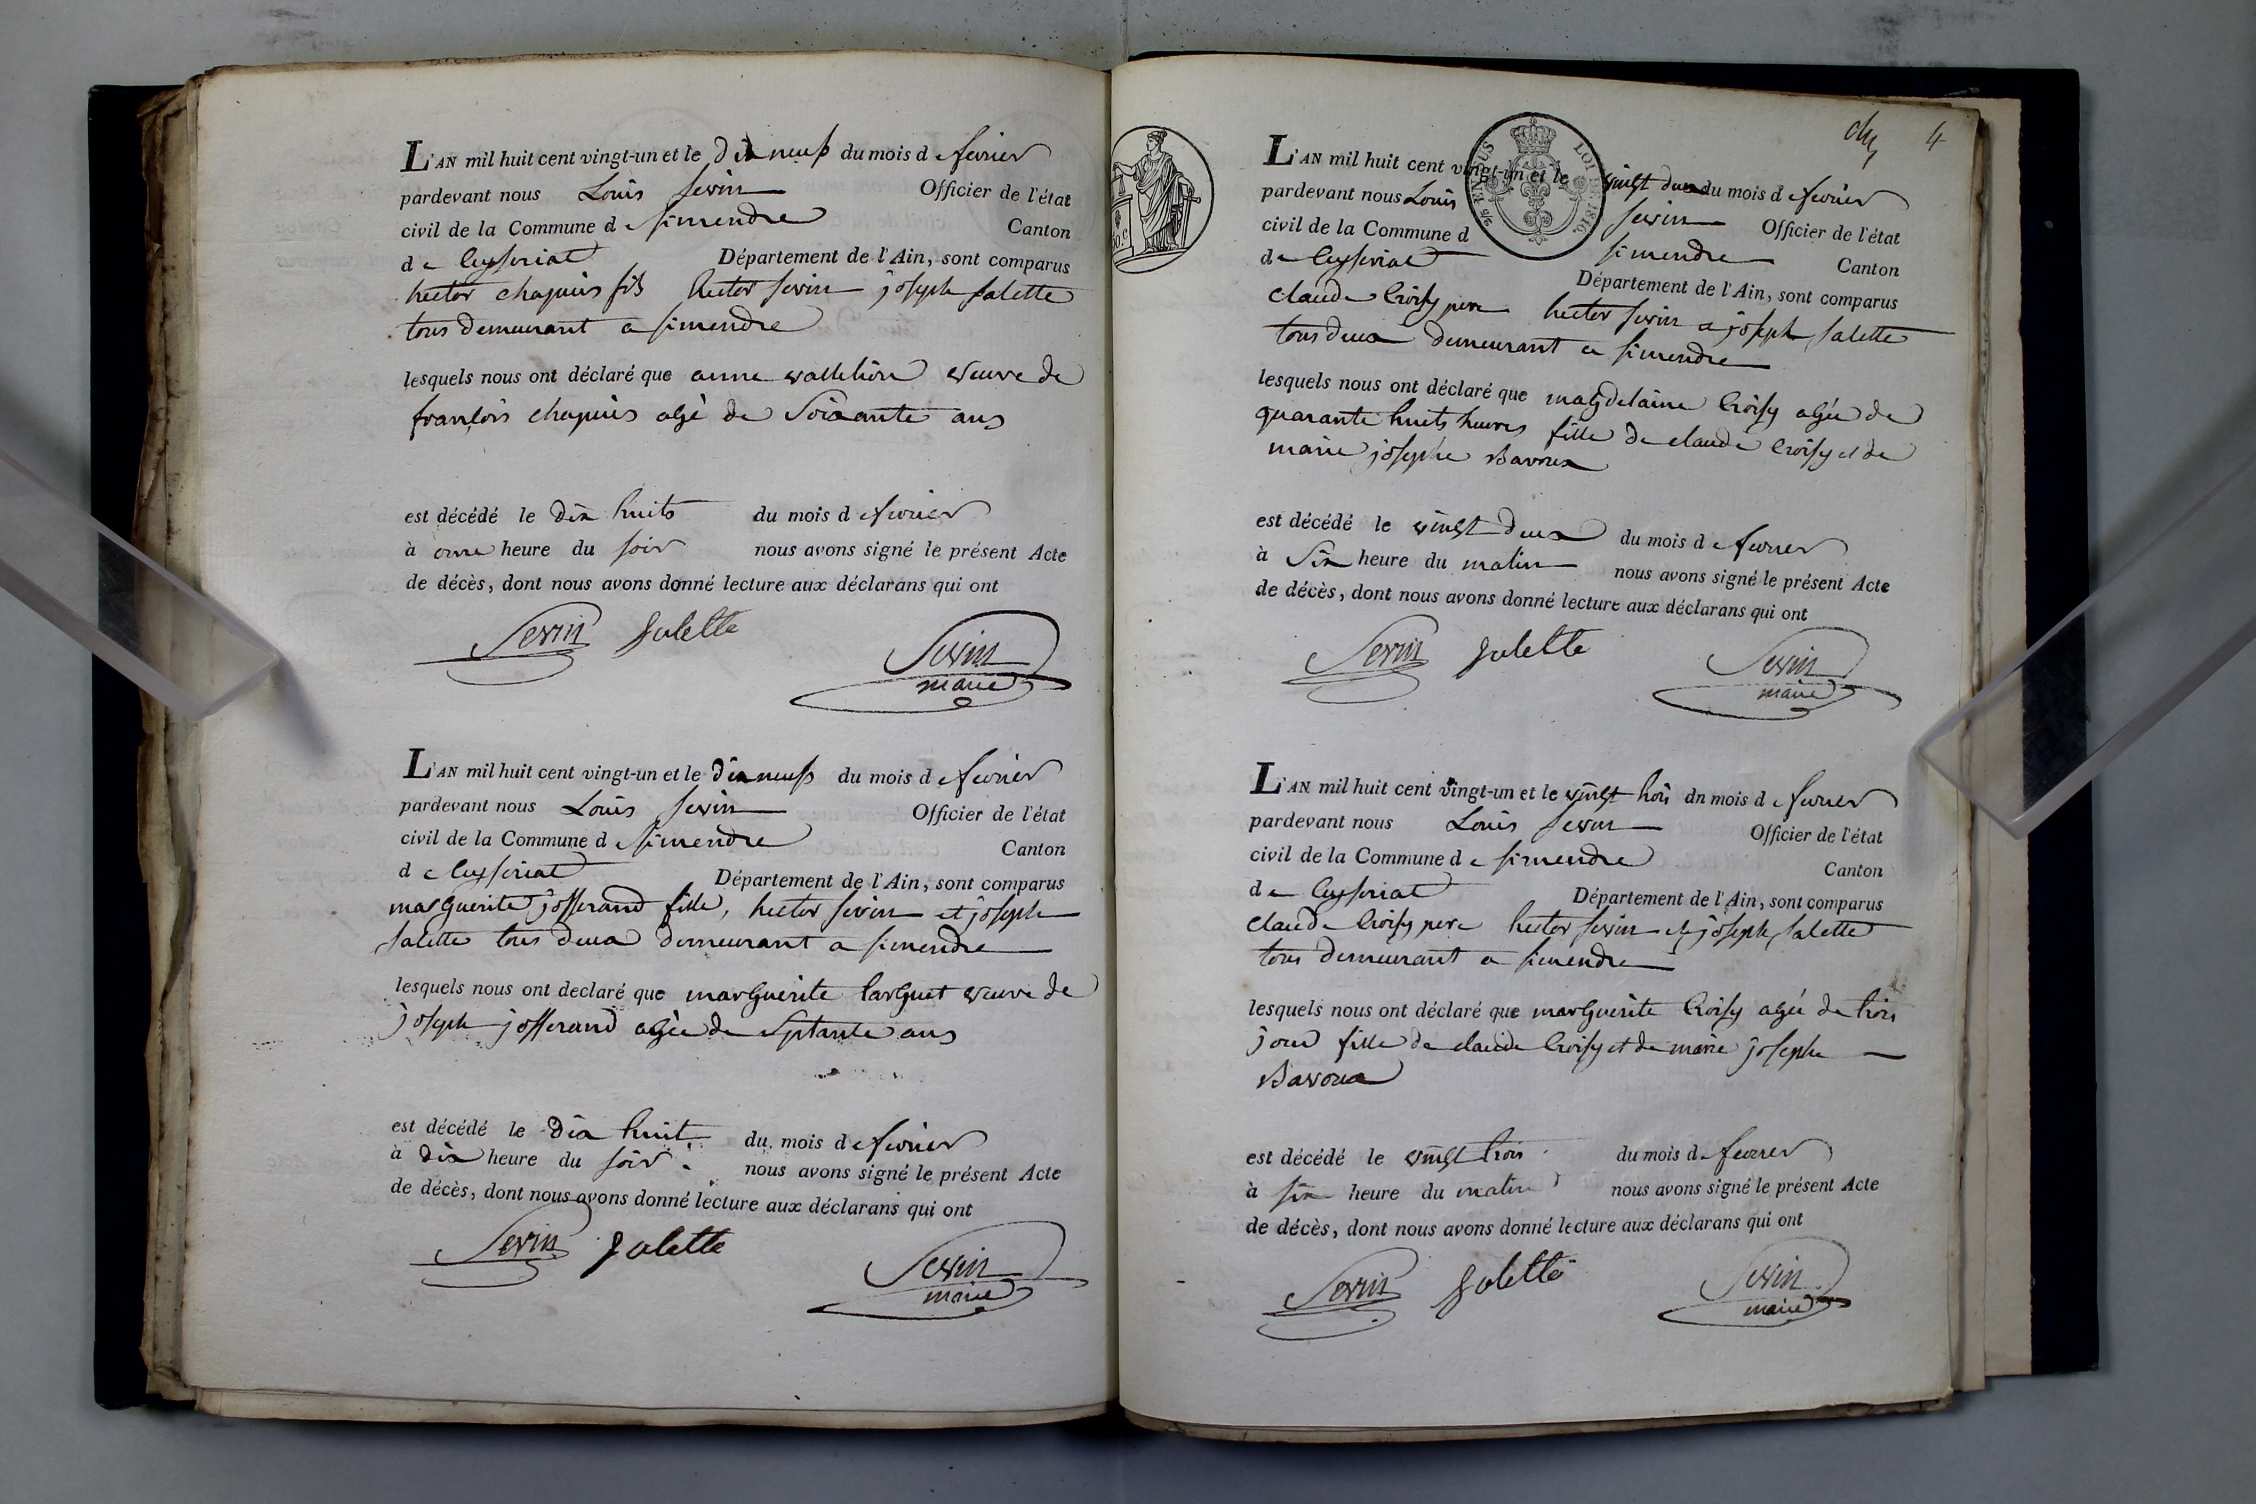 L'AN mil huit cent vingt-un et le dix neuf du mois de fevrier
pardevant nous Louis sevin Officier de l'état
civil de la Commune de simendre Canton
de Ceyseriat Département de l'Ain, sont comparus
hector chapuis fils hector sevin joseph salette
tous demeurant a simendre
lesquels nous ont déclaré que anne veuve de
françois chapuis agé de Soixante ans
est décédé le dix huits du mois de fevrier
à onze heure du soir nous avons signé le présent Acte
de décès, dont nous avons donné lecture aux déclarans qui ont
Sevin Salette Sevin
maire
L'AN mil huit cent vingt-un et le dix neuf du mois de fevrier
pardevant nous Louis sevin Officier de l'état
civil de la Commune de simendre Canton
de Ceyseriat Département de l'Ain, sont comparus
marguerite josserand fille, hector sevin et joseph
salette tous deux demeurant a simendre
lesquels nous ont declaré que marguerite larguet veuve de
joseph josserand agée de septante ans
est décédé le dix huit du mois de fevrier
à dix heure du soir nous avons signé le présent Acte
de décès, dont nous avons donné lecture aux déclarans qui ont
Sevin Salette Sevin
maire
4
EN SUS LOI DE 1816.
L'AN mil huit cent vingt-un et le vingt deux du mois de fevrier
pardevant nous Louis sevin Officier de l'état
civil de la Commune d simendre Canton
de Ceyseriat Département de l'Ain, sont comparus
claude Croisy pere hector sevin a joseph salette
tous deux demeurant a simendre
lesquels nous ont déclaré que magdelaine Croisy agée de
quarante huits heures fille de claude Croisy et de
marie josephe Bavoux
est décédé le vingt deux du mois de fevrier
à Six heure du matin nous avons signé le présent Acte
de décès, dont nous avons donné lecture aux déclarans qui ont
Sevin Salette Sevin
maire
L'AN mil huit cent vingt-un et le vingt trois dn mois de fevrier
pardevant nous Louis sevin Officier de l'état
civil de la Commune de simendre Canton
de Ceyseriat Département de l'Ain, sont comparus
claude Croisy pere hector sevin et joseph salette
tous demeurant a simendre
lesquels nous ont déclaré que marguerite Croisy agée de trois
jour fille de claude Croisy et de marie josephe
Bavoux
est décédé le vingt trois du mois de fevrier
à six heure du matin nous avons signé le présent Acte
de décès, dont nous avons donné lecture aux déclarans qui ont
Sevin Salette Sevin
maire